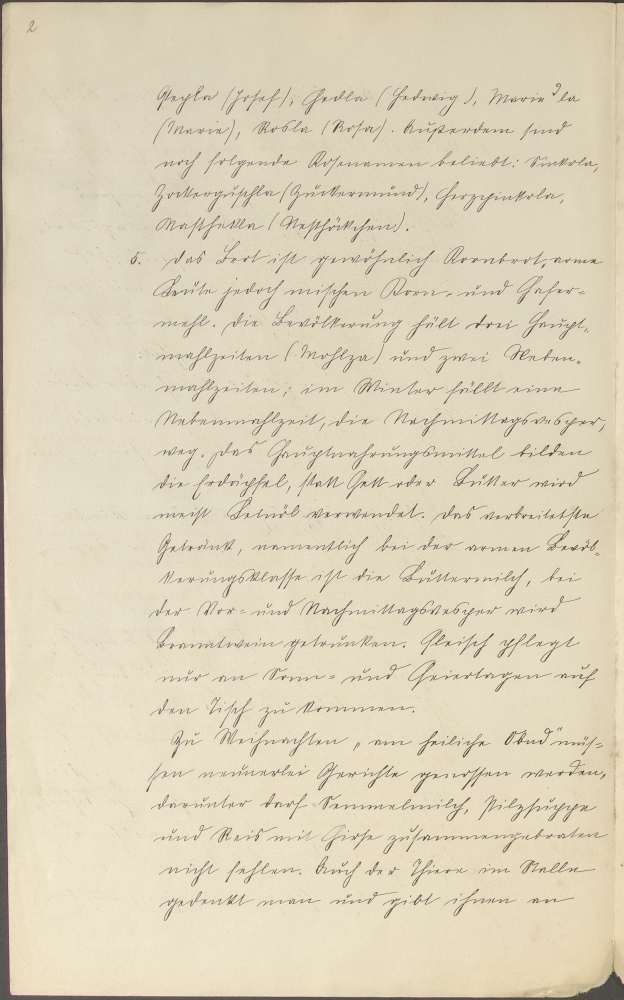 2
Sepla (Josef), Hedla (Hedwig), Mariedla
(Marie), Rosla (Rosa). Außerdem sind
noch folgende Kosenamen beliebt:
(Zuckermund),
(Nesthöckchen).
5. Das Brot ist gewöhnlich Kornbrot, arme
Leute jedoch mischen Korn- und Hafer-
mehl. Die Bevölkerung hält drei Haupt-
mahlzeiten (Mohlza) und zwei Neben-
mahlzeiten; im Winter fällt eine
Nebenmahlzeit, die Nachmittagsvesper,
weg. Das Hauptnahrungsmittel bilden
die Erdäpfel, statt Fett oder Butter wird
meist Leinöl verwendet. Das verbreitetste
Getränk, namentlich bei der armen Bevöl-
kerungsklasse ist die Buttermilch, bei
der Vor- und Nachmittagsvesper wird
Branntwein getrunken. Fleisch pflegt
nur an Sonn- und Feiertagen auf
den Tisch zu kommen.
Zu Weihnachten „am heiliche Obnd" müs-
sen neunerlei Gerichte genossen werden,
darunter darf Semmelmilch, Pilzsuppe
und Reis mit Hirse zusammengebraten
nicht fehlen. Auch der Thiere im Stalle
gedenkt man und gibt ihnen an